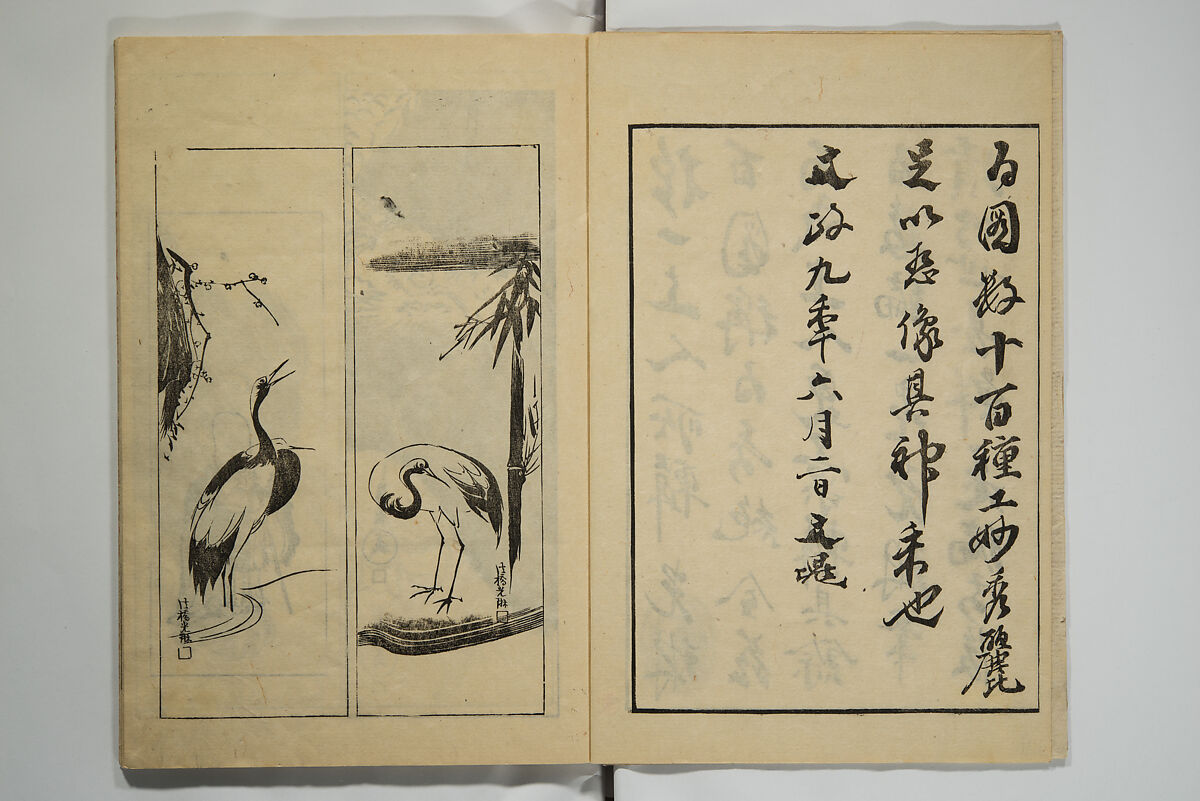 為圖数十百種工妙秀麗
足以想像其神采也
文政九年六月二日文晁
法橋光琳
法橋光琳